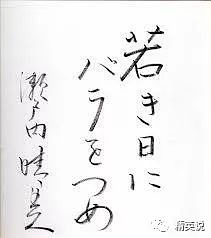 若き日に
バラをつめ
瀬戸内晴美
精英说